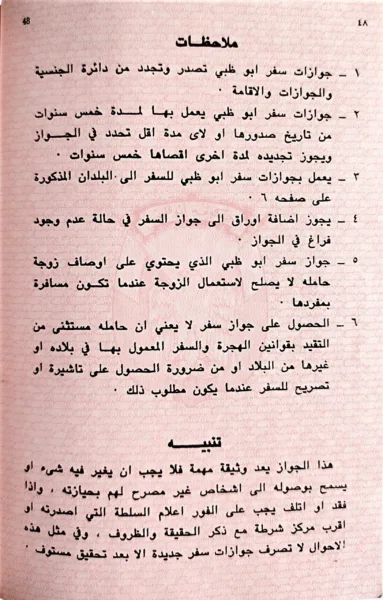 48 ٤٨
ملاحظات
١ ـ جوازات سفر ابو ظبي تصدر وتجدد من دائرة الجنسية
والجوازات والاقامة ٠
٢ ـ جوازات سفر ابو ظبي يعمل بها لمدة خمس سنوات
من تاريخ صدورها او لاى مدة اقل تحدد في الجواز
ويجوز تجديده لمدة اخرى اقصاها خمس سنوات ٠
٣ ـ يعمل بجوازات سفر ابو ظبي للسفر الى البلدان المذكورة
على صفحه ٦ ٠
٤ ـ يجوز اضافة اوراق الى جواز السفر في حالة عدم وجود
فراغ في الجواز ٠
٥ ـ جواز سفر ابو ظبي الذي يحتوي على اوصاف زوجة
حامله لا يصلح لاستعمال الزوجة عندما تكون مسافرة
بمفردها ٠
٦ ـ الحصول على جواز سفر لا يعني ان حامله مستثنى من
التقيد بقوانين الهجرة والسفر المعمول بها في بلاده او
غيرها من البلاد او من ضرورة الحصول على تاشيرة او
تصريح للسفر عندما يكون مطلوب ذلك ٠
تنبيه
هذا الجواز يعد وثيقة مهمة فلا يجب ان يغير فيه شىء او
يسمح بوصوله الى اشخاص غير مصرح لهم بحيازته ، واذا
فقد او اتلف يجب على الفور اعلام السلطة التي اصدرته او
اقرب مركز شرطة مع ذكر الحقيقة والظروف ، وفي مثل هذه
الاحوال لا تصرف جوازات سفر جديدة الا بعد تحقيق مستوف ٠